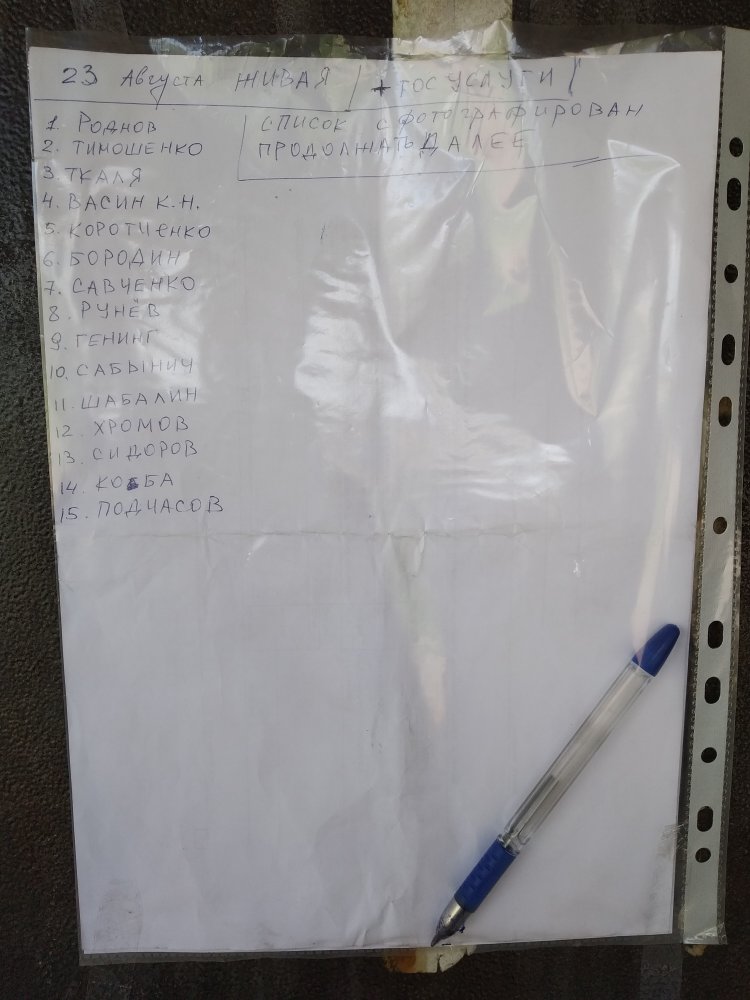 23 Августа ЖИВАЯ + ГОСУСЛУГИ
СПИСОК СФОТОГРАФИРОВАН
ПРОДОЛЖАТЬ ДАЛЕЕ
1. РОДНОВ
2. ТИМОШЕНКО
3. ТКАЛЯ
4. ВАСИН К.Н.
5. КОРОТЧЕНКО
6. БОРОДИН
7. САВЧЕНКО
8. РУНЁВ
9. ГЕНИНГ
10. САБЫНИЧ
11. ШАБАЛИН
12. ХРОМОВ
13. СИДОРОВ
14.
15. ПОДЧАСОВ